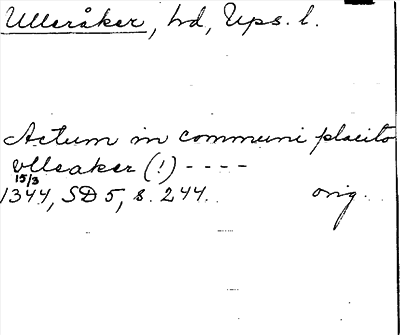 Ulleråker, hd, Ups. l.
Actum in communi placito
vlleaker (!) - - - -
15/3
1344, SD 5, s. 244. orig.